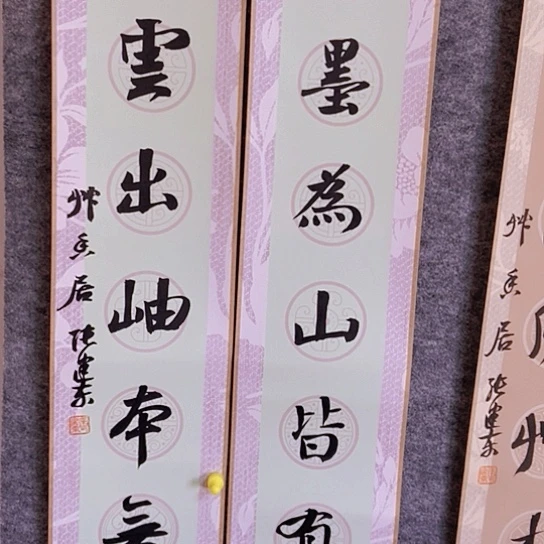 墨為山皆有
雲出岫本無
艸香居 張建東
艸香居 張建東